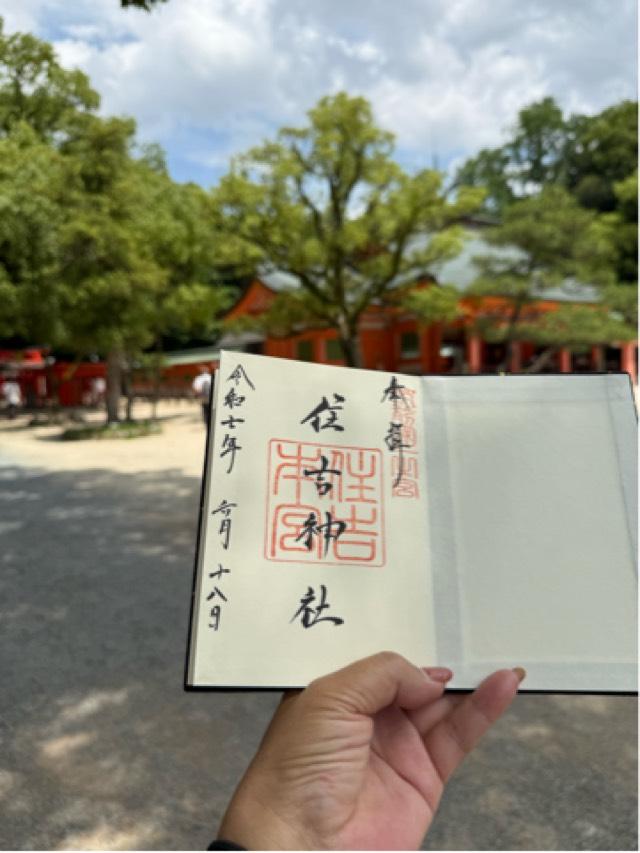 奉拝
住吉神社
住吉本宮
令和七年 六月 十八日